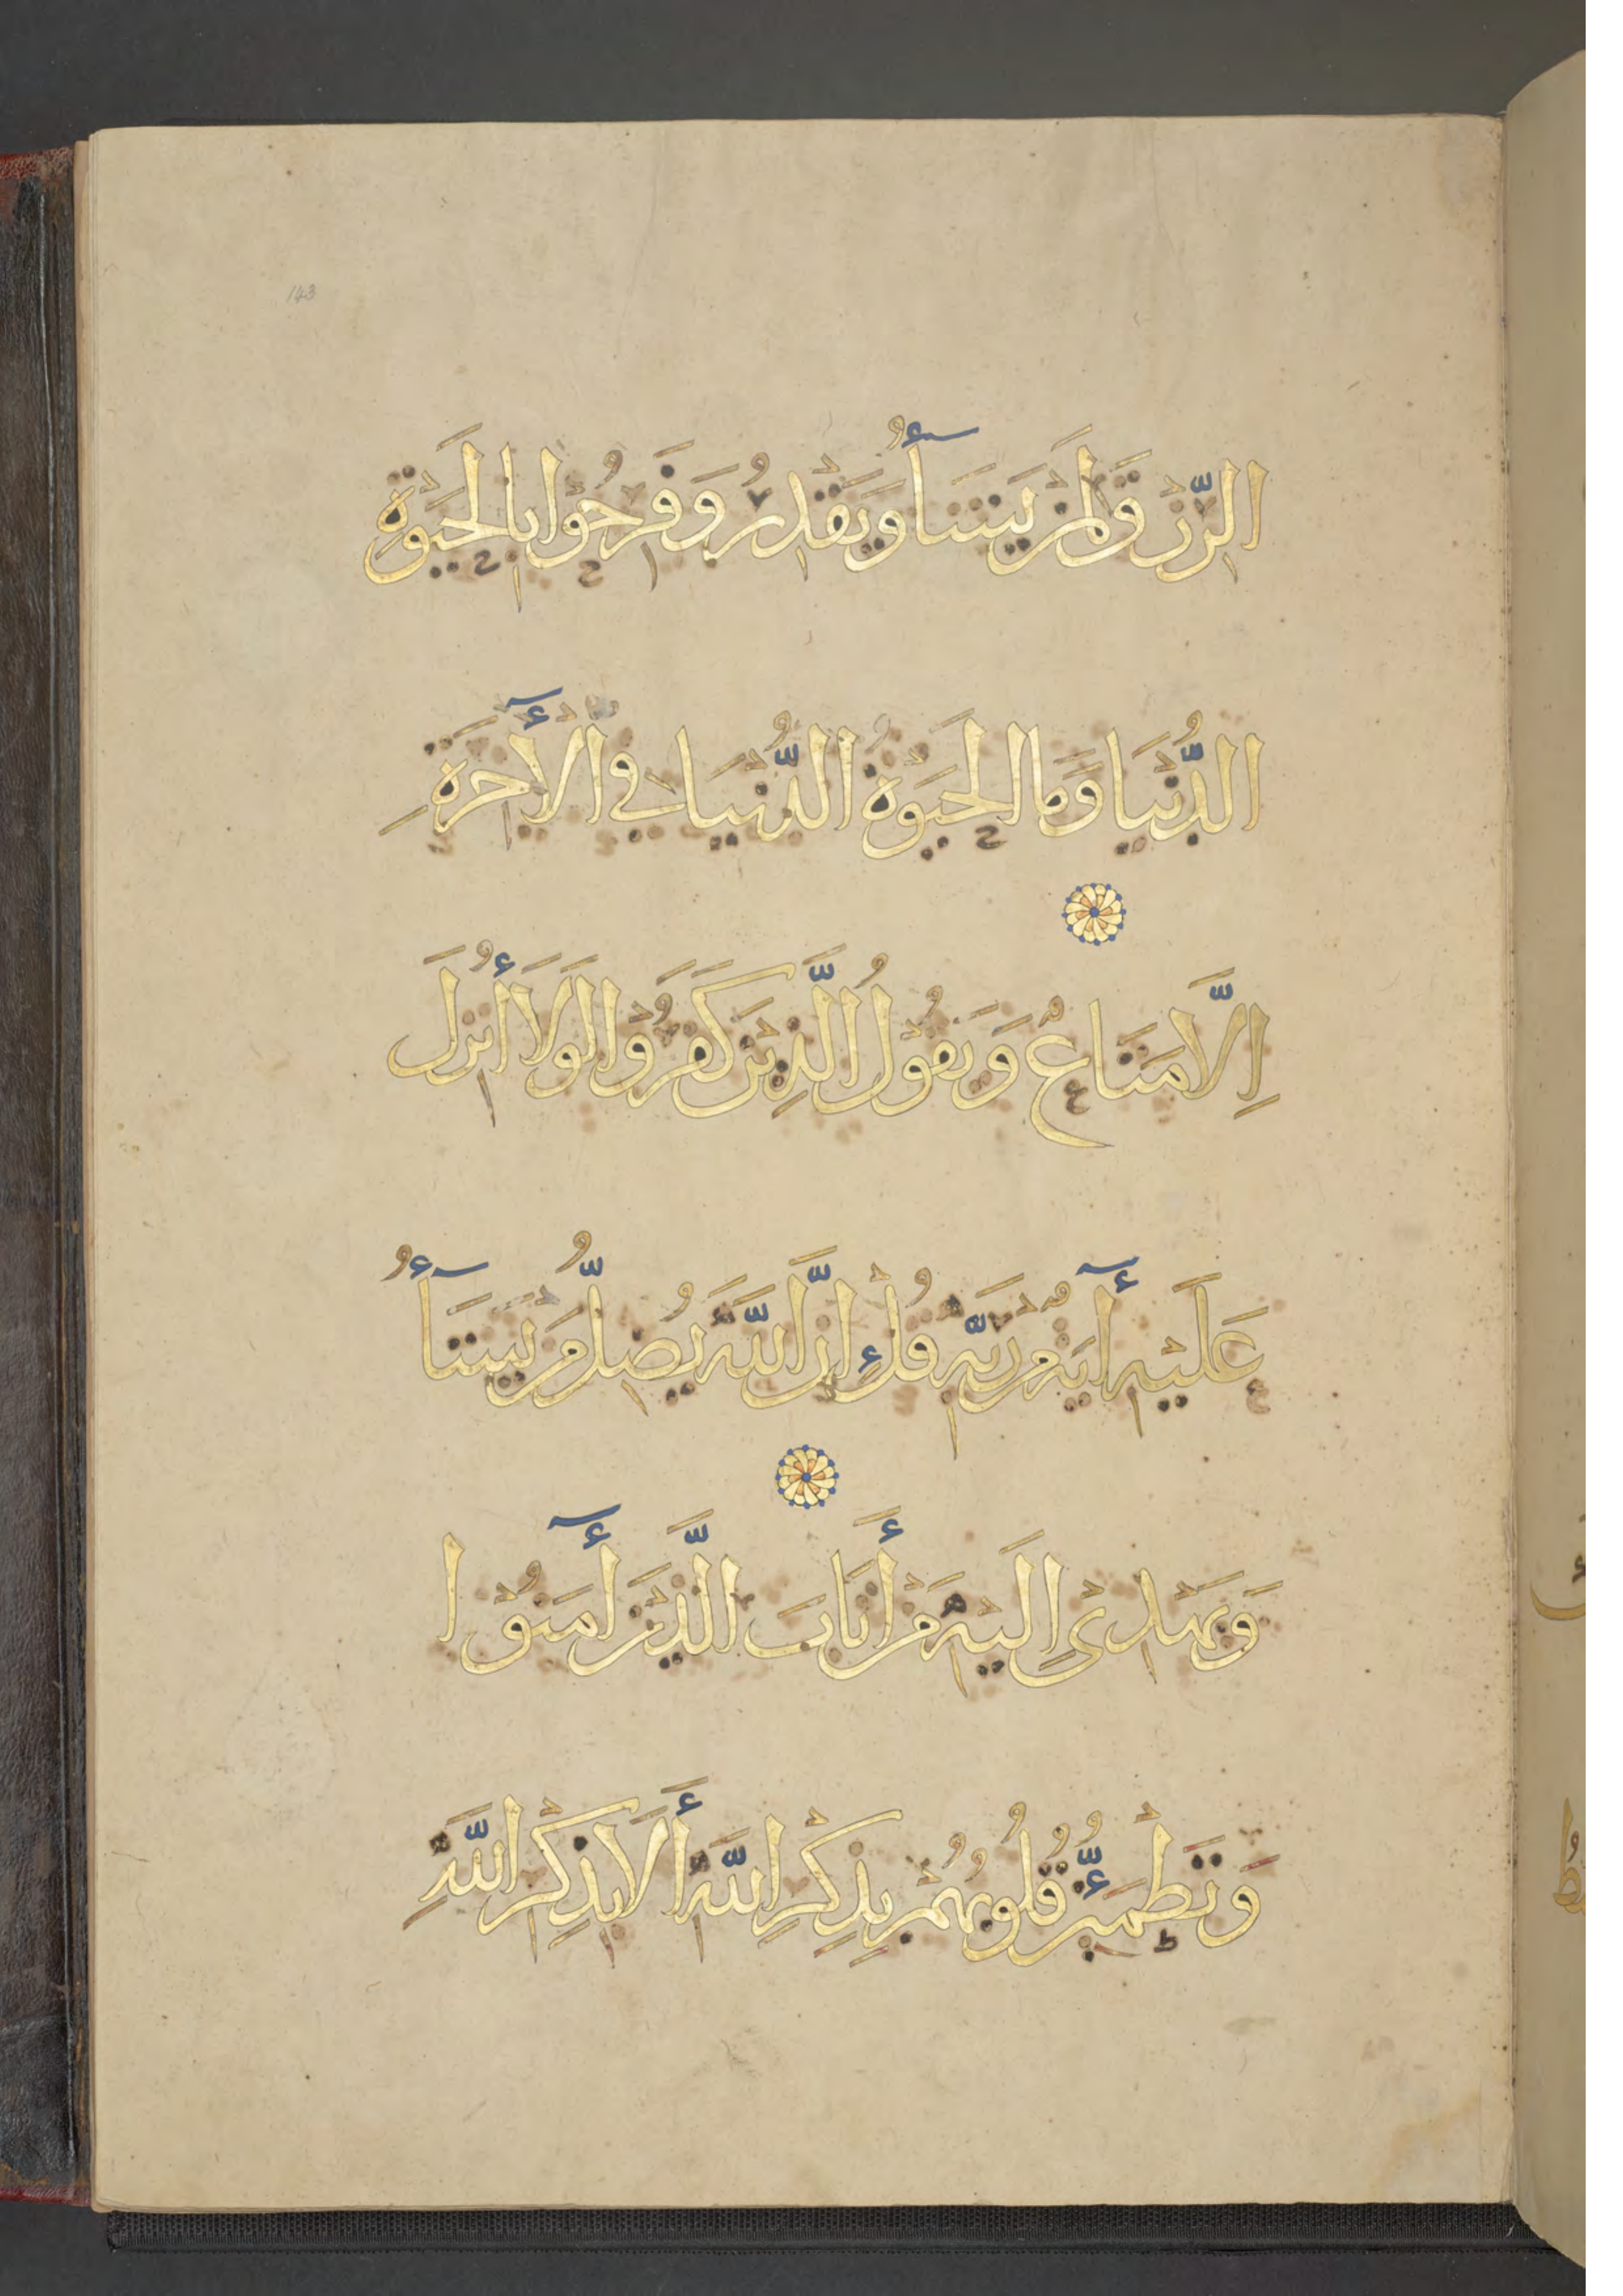 143
الرِّزْقَ لِمَنْ يَشَآءُ وَيَقْدِرُ وَفَرِحُوْا بِالْحَيَوةِ
الدُّنْيَا وَمَا الْحَيَوةُ الدُّنْيَا فِي الْأٓخِرَةِ
اِلَّا مَتَاعٌ وَيَقُوْلُ الَّذِيْنَ كَفَرُوْا لَوْلَا أُنْزِلَ
عَلَيْهِ أٓيَةٌ مِنْ رَبِّهِ قُلْ إِنَّ اللَّهَ يُضِلُّ مَنْ يَشَآءُ
وَيَهْدِىْ اِلَيْهِ مَنْ أَنَابَ الَّذِيْنَ أٓمَنُوْا
وَتَطْمَئِنُّ قُلُوبُهُمْ بِذِكْرِ اللَّهِ أَلَا بِذِكْرِ اللَّهِ